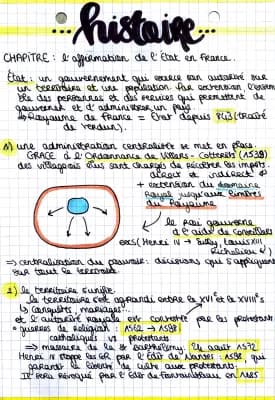 ... histoire ...
CHAPITRE : l'affirmation de l'État en France.
État : un gouvernement qui exerce son autorité sur
un territoire et une population. Par extension, l'ensem
ble des personnes et des services qui permettent de
gouverner et d'administrer un pays
↳ Royaume de France = État depuis 843 (traité
de Verdun).
1) une administration centralisée se met en place.
GRACE à l'Ordonnance de Villers-Cotterêts (1539)
des villageois élus sont chargés de récolter les impôts
direct et indirect
+ extension du domaine
royal jusqu'aux limites
du Royaume
le roi gouverne
à l'aide de conseillers
exs (Henri IV → Sully, Louis XIII
Richelieu)
⇒ centralisation du pouvoir : décisions qui s'appliquent
sur tout le territoire
2) le territoire unifié.
le territoire s'est agrandi entre le XVIe et le XVIIIe s
↳ conquêtes, mariages...
et l'autorité royale est contestée par les protestants
• guerres de religion : 1562 → 1598
catholiques vs protestants
⇒ massacre de la St Barthélemy : 24 août 1572
Henri IV stoppe les GR par l'Édit de Nantes : 1598, qui
garantit la liberté de culte aux protestants.
Il sera révoqué par l'édit de Fontainebleau en 1685